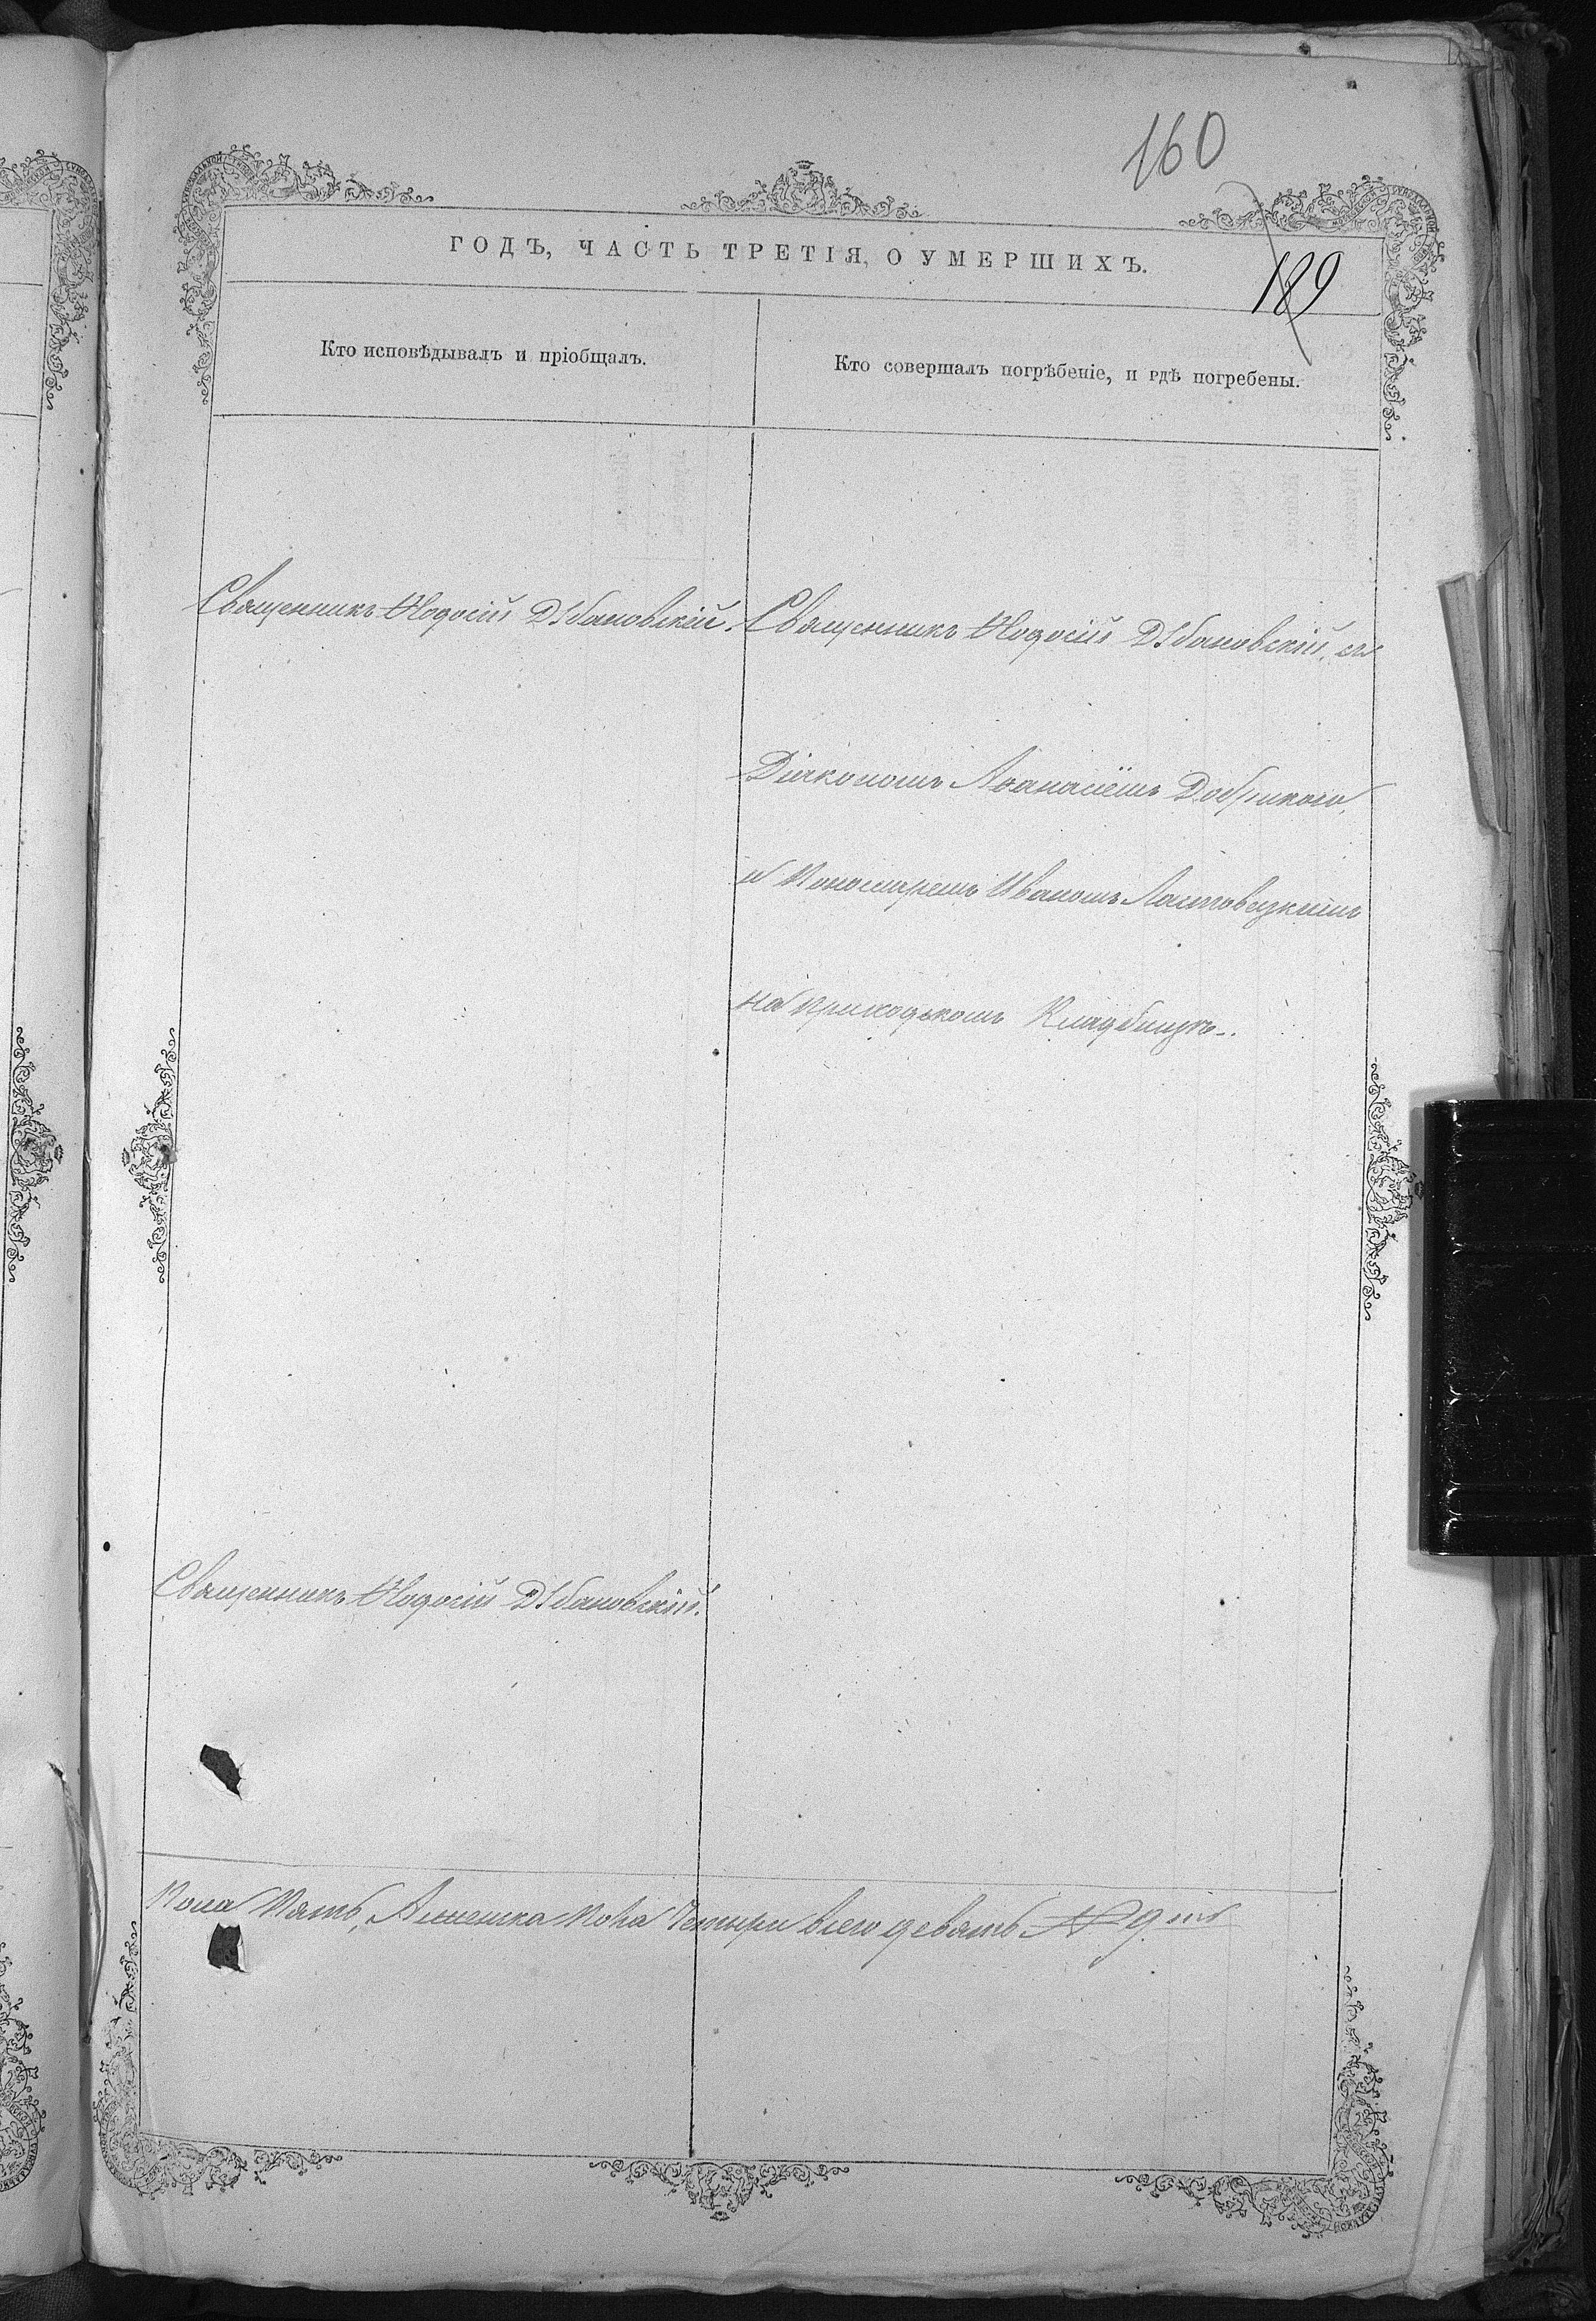 160
ГОДЪ, ЧАСТЬ ТРЕТІЯ, О УМЕРШИХЪ.
189
Кто исповѣдывалъ и пріобщалъ.
Кто совершалъ погрѣбеніе, и гдѣ погребены.
Священникъ Ѳеодосій Дзбановскій.
Священникъ Ѳеодосій Дзбановскій, съ
Діакономъ Аѳанасіемъ
и Пономаремъ Иваномъ Лаитовецкимъ
на приходскомъ Кладбищѣ.
Священникъ Ѳеодосій Дзбановскій.
Пола Пять, Женска Пола Четыри всего девять № 9.ть